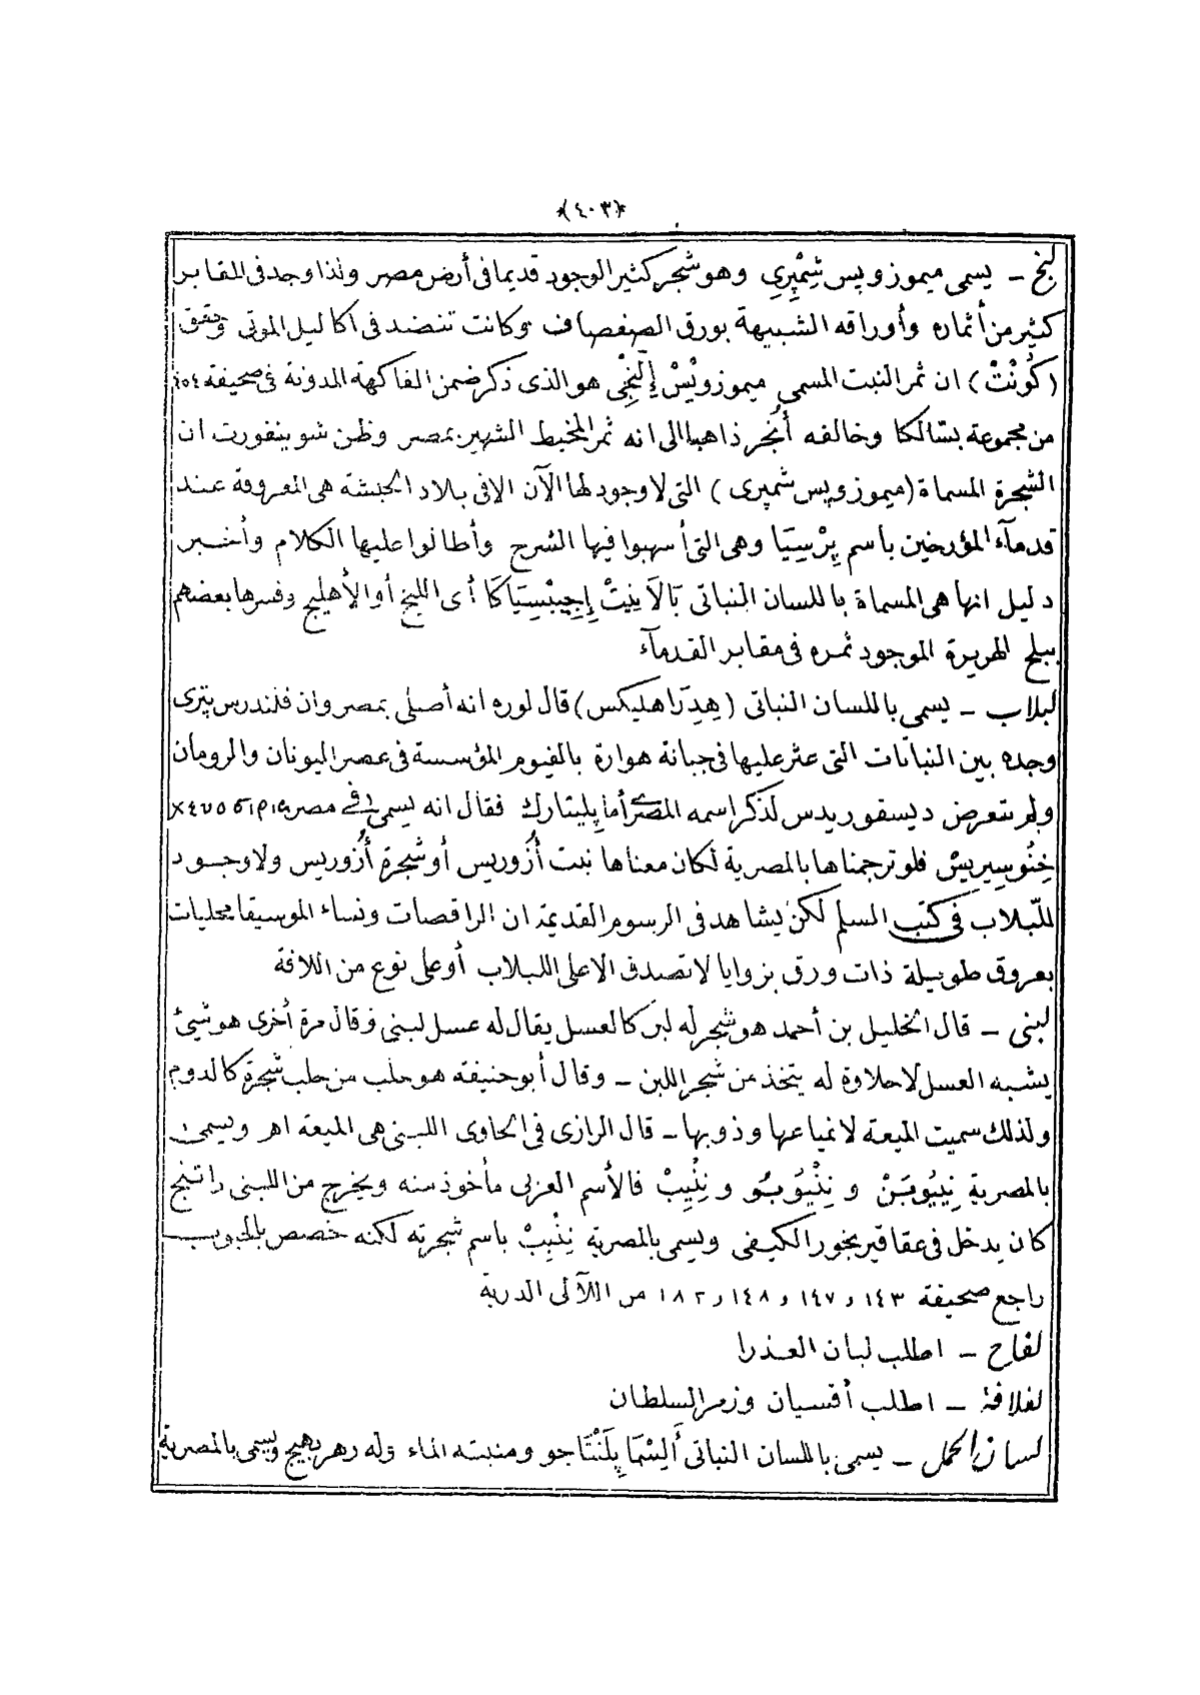 *(٤٠٣)*
لبخ – يسمى ميموزوپس شِمْپرِى وهو شجر كثير الوجود قديما فى أرض مصر ولذا وجد فى المقابر
كثير من أثماره وأوراقه الشبيهة بورق الصفصاف وكانت تنضد فى اكاليل الموتى وحقق
(كُونْتْ) ان ثمر النبت المسمى ميموزوپْسْ إِلَنْجِى هو الذى ذكر ضمن الفاكهة المدونة فى صحيفة
من مجموعة بسّالكا وخالفه أُنْجر ذاهبا الى انه ثمر المخيط الشهير بمصر وظن شوينفورت ان
الشجرة المسماة (ميموزوپس شمپرى) التى لا وجود لها الآن الا فى بلاد الحبشة هى المعروفة عند
قدمآء المؤرخين باسم پِرْسِيَا وهى التى أسهبوا فيها الشرح وأطالوا عليها الكلام وأخبر
دليل انها هى المسماة باللسان النباتى بَالَانِيتْ إِجِيبْسِيَاكَا أى اللبخ أو الأهليج وفسرها بعضهم
ببلح الهريرة الموجود ثمره فى مقابر القدمآء
لبلاب – يسمى باللسان النباتى (هِدِرَا هليكس) قال لوره انه أصلى بمصر وان فلندرس پترى
وجده بين النباتات التى عثر عليها فى جبانة هوارة بالفيوم المؤسسة فى عصر اليونان والرومان
ولم يتعرض ديسقوريدس لذكر اسمه المصرى أما پليتارك فقال انه يسمى فى مصر
خِنُوسِيرِيسْ فلو ترجمناها بالمصرية لكان معناها نبت أُزوريس أو شجرة أُزوريس ولا وجود
للّبلاب فى كتب السلم لكن يشاهد فى الرسوم القديمة ان الراقصات ونساء الموسيقا محليات
بعروق طويلة ذات ورق بزوايا لا تصدق الا على اللبلاب أو على نوع من اللافة
لبنى – قال الخليل بن أحمد هو شجر له لبن كالعسل يقال له عسل لبنى وقال مرة أخرى هو شئ
يشبه العسل لا حلاوة له يتخذ من شجر اللبن – وقال أبو حنيفة هو حلب من حلب شجرة كالدوم
ولذلك سميت الميعة لانمياعها وذوبها – قال الرازى فى الحاوى اللبنى هى الميعة اهـ ويسمى
بالمصرية نِيبُوبَنْ و نِنْيُوبُو و نِنْيِبْ فالأسم العربى مأخوذ منه ويخرج من اللبنى راتنج
كان يدخل فى عقاقير بخور الكيفى ويسمى بالمصرية نِنْيِبْ باسم شجرته لكنه خصص بالحبوب
راجع صحيفة ١٤٣ و ١٤٧ و ١٤٨ و ١٨٢ من اللآلى الدرية
لفاح – اطلب لبان العذرا
لفلافة – اطلب أقسيان وزمر السلطان
لسان الحمل – يسمى باللسان النباتى أَلِيسْمَا پِلَنْتَاجو ومنبته الماء وله زهر بهيج ويسمى بالمصرية